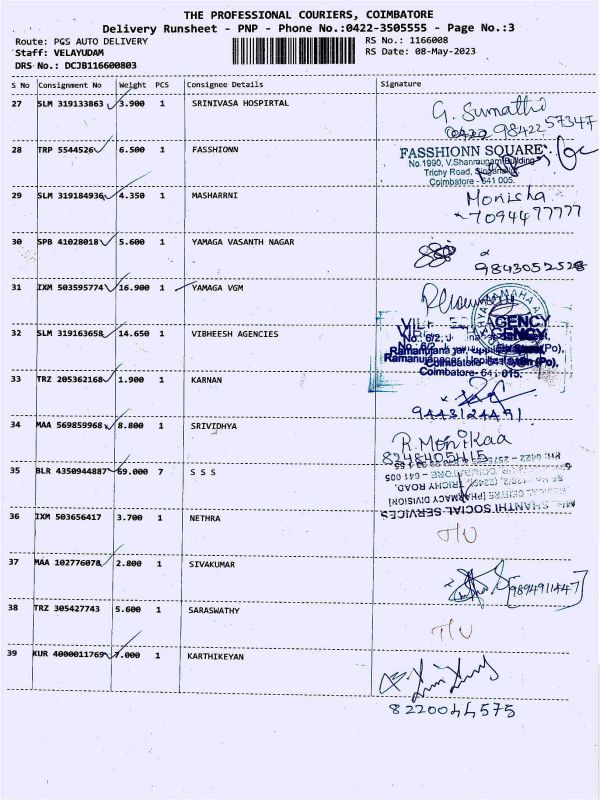 THE PROFESSIONAL COURIERS, COIMBATORE
Delivery Runsheet - PNP - Phone No.:0422-3505555 - Page No.:3
Route: PGS AUTO DELIVERY RS No.: 1166008
Staff: VELAYUDAM RS Date: 08-May-2023
DRS No.: DCJB116600803
S No Consignment No Weight PCS Consignee Details Signature
27 SLM 319133863 3.900 1 SRINIVASA HOSPIRTAL G. Sumathi
0422 98422 57347
28 TRP 5544526 6.500 1 FASSHIONN FASSHIONN SQUARE
No.1990, V.Shanmugam Building
Trichy Road,
Coimbatore - 641 005.
29 SLM 319184936 4.350 1 MASHARRNI Monisha
7094477777
30 SPB 41028018 5.600 1 YAMAGA VASANTH NAGAR
9843052528
31 IXM 503595774 16.900 1 YAMAGA VGM
AGENCY
32 SLM 319163658 14.650 1 VIBHEESH AGENCIES
No. 6/2,
Ramanujana
Coimbatore- 641 015.
33 TRZ 205362168 1.900 1 KARNAN
9443124491
34 MAA 569859968 8.800 1 SRIVIDHYA R. Monikaa
8248405415
35 BLR 4350944887 69.000 7 S S S
COIMBATORE - 641 005
TRICHY ROAD,
[PHARMACY DIVISION]
M/s. SHANTHI SOCIAL SERVICES
36 IXM 503656417 3.700 1 NETHRA
37 MAA 102776078 2.800 1 SIVAKUMAR
[9894911447]
38 TRZ 305427743 5.600 1 SARASWATHY
39 KUR 4000011769 7.000 1 KARTHIKEYAN
8220044575